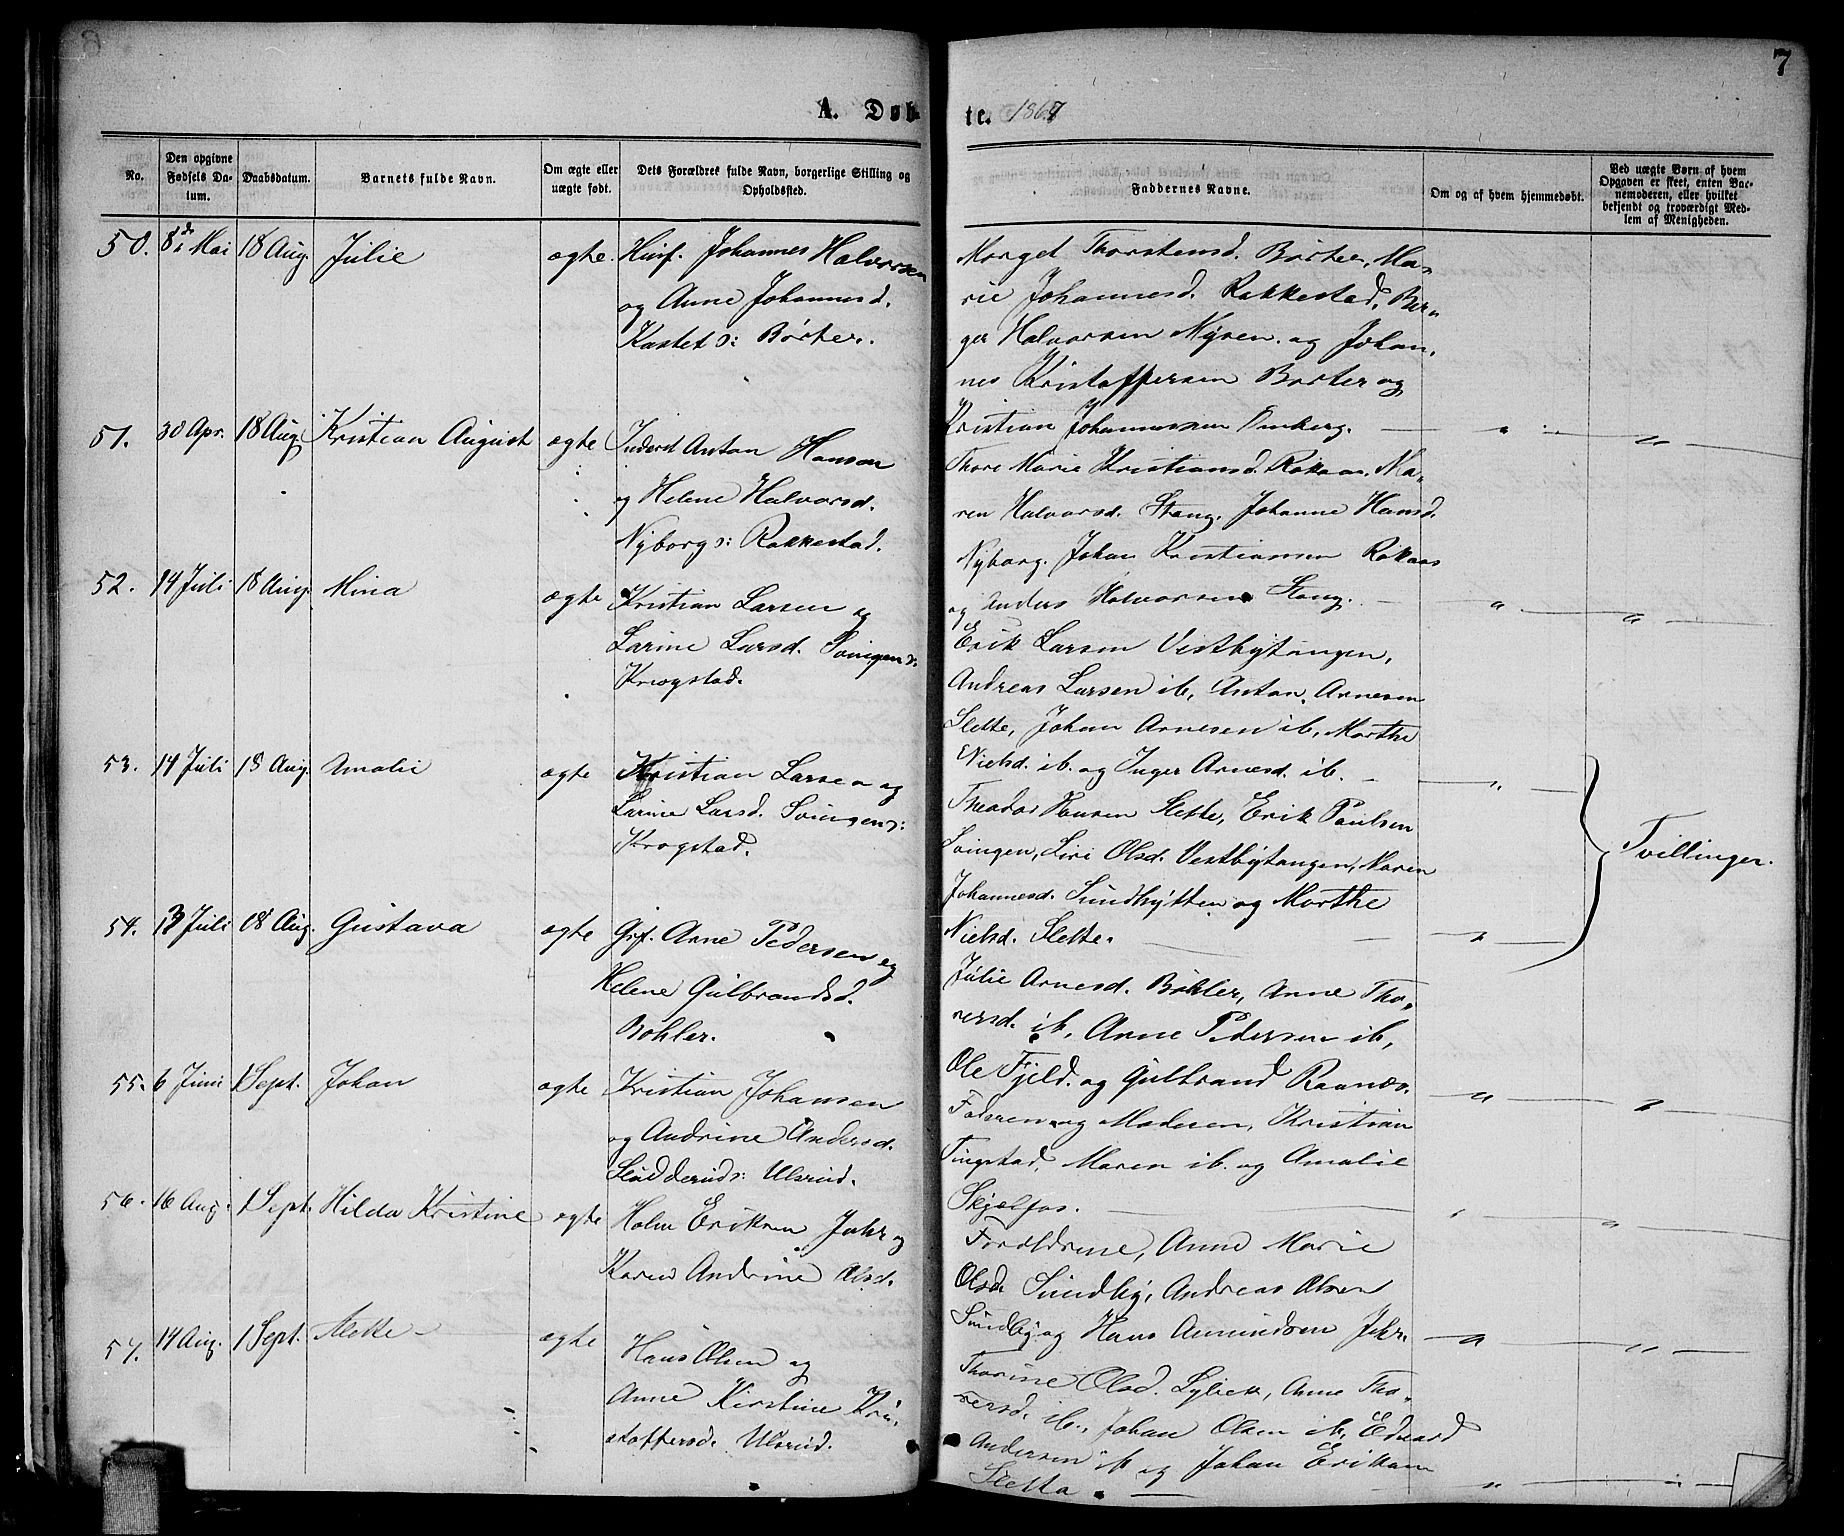 7
A. Døb-
te. 1867
No.
Den opgivne Fødsels Da-tum.
Daabsdatum.
Barnets fulde Navn.
Om ægte eller uægte født.
Dets Forældres fulde Navn, borgerlige Stilling og Opholdssted.
Faddernes Navne.
Om og af hvem hjemmedøbt.
Ved uægte Børn af hvem Opgaven er skeet, enten Bar-nemoderen, eller hvilket bekjendt og troværdigt Med-lem af Menigheden.
50. 8de Mai 18 Aug. Julie ægte. Husf. Johannes Halvorsen
og Anne Johannesd.
Kastet s: Børter.
Marget Thorstensd. Børter, Ma-
rie Johannesd. Rakkestad, Bir-
ger Halvorsen Mysen og Johan-
nes Kristoffersen Børter og
Kristian Johannessen Omberg. — " — " —
51. 30 Apr. 18 Aug. Kristian August ægte Inderst Anton Hansen
og Helene Halvorsd.
Nyborg s: Rakkestad.
Thore Marie Kristiansd. Rakaas, Ma-
ren Halvorsd. Stang, Johanne Hansd.
Nyborg, Johan Kristiansen Rakaas
og Anders Halvorsen Stang. — " — " —
52. 14 Juli 18 Aug. Mina ægte Kristian Larsen og
Larine Larsd. Svingen s:
Krogstad.
Erik Larsen Vestbytangen,
Andreas Larsen ib, Anton Arnesen
Slette, Johan Arnesen ib, Marthe
Nielsd. ib. og Inger Arnesd. ib. — " —
53. 14 Juli 18 Aug. Amalie ægte Kristian Larsen og
Larine Larsd. Svingen s:
Krogstad.
Theodor Hansen Slette, Erik Paulsen
Svingen, Siri Olsd. Vestbytangen, Maren
Johannesd. Sundbytten og Marthe
Nielsd. Slette. — " —
Tvillinger.
54. 13 Juli 18 Aug. Gustava ægte Grf. Arne Pedersen og
Helene Gulbrandsd.
Bøhler.
Julie Arnesd. Bøhler, Anne Tho-
rersd. ib, Arne Pedersen ib,
Ole Fjeld og Gulbrand Raanæs. — " — " —
55. 6 Juni 1 Sept. Johan ægte Kristian Johansen
og Andrine Andersd.
Sludderud s: Ulsrud.
Faderen og Moderen, Kristian
Tingstad, Maren ib. og Amalie
Skjælfos. — " — " —
56. 16 Aug. 1 Sept. Hilda Kristine ægte Holm Eriksen Jahr og
Karen Andrine Olsd.
Forældrene, Anne Marie
Olsd. Sundby, Andreas Olsen
Sundby og Hans Amundsen Jahr. — " — " —
57. 14 Aug. 1 Sept. ægte Hans Olsen og
Anne Kirstine Kri-
stoffersd. Ulsrud.
Thorine Olsd. Anne Tho-
rersd. ib., Johan Olsen ib, Edvard
Andersen ib og Johan Eriksen
Sletta. — " — " —